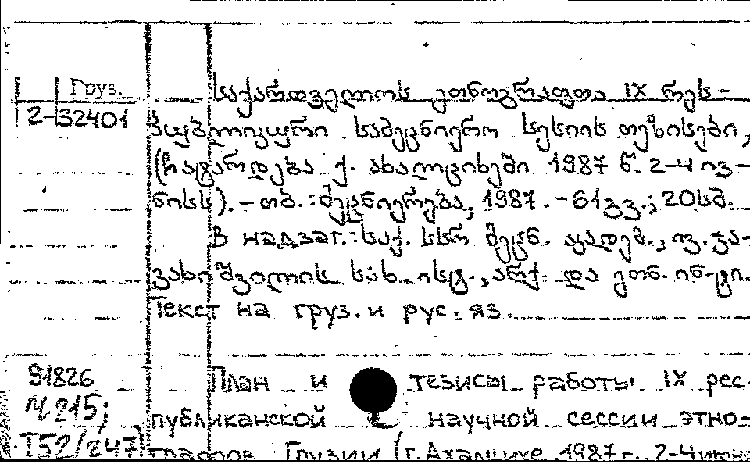 Груз.
2-32401
საქართველოს ეთნოგრაფთა IX რეს-
პუბლიკური სამეცნიერო სესიის თეზისები,
(ჩატარდება ქ. ახალციხეში 1987 წ. 2-4 ივ-
ნისს). – თბ.: მეცნიერება, 1987. – 61 გვ.; 20 სმ.
В надзаг.: საქ. სსრ მეცნ. აკადემ., ივ. ჯა-
ვახიშვილის სახ. ისტ., არქ. და ეთნ. ინ-ტი.
Текст на груз. и рус. яз.
План и тезисы работы IX рес-
публиканской научной сессии этно-
графов Грузии (г. Ахалцихе 1987 г. 2-4 июн
91826
Ч 215;
Т52/247)